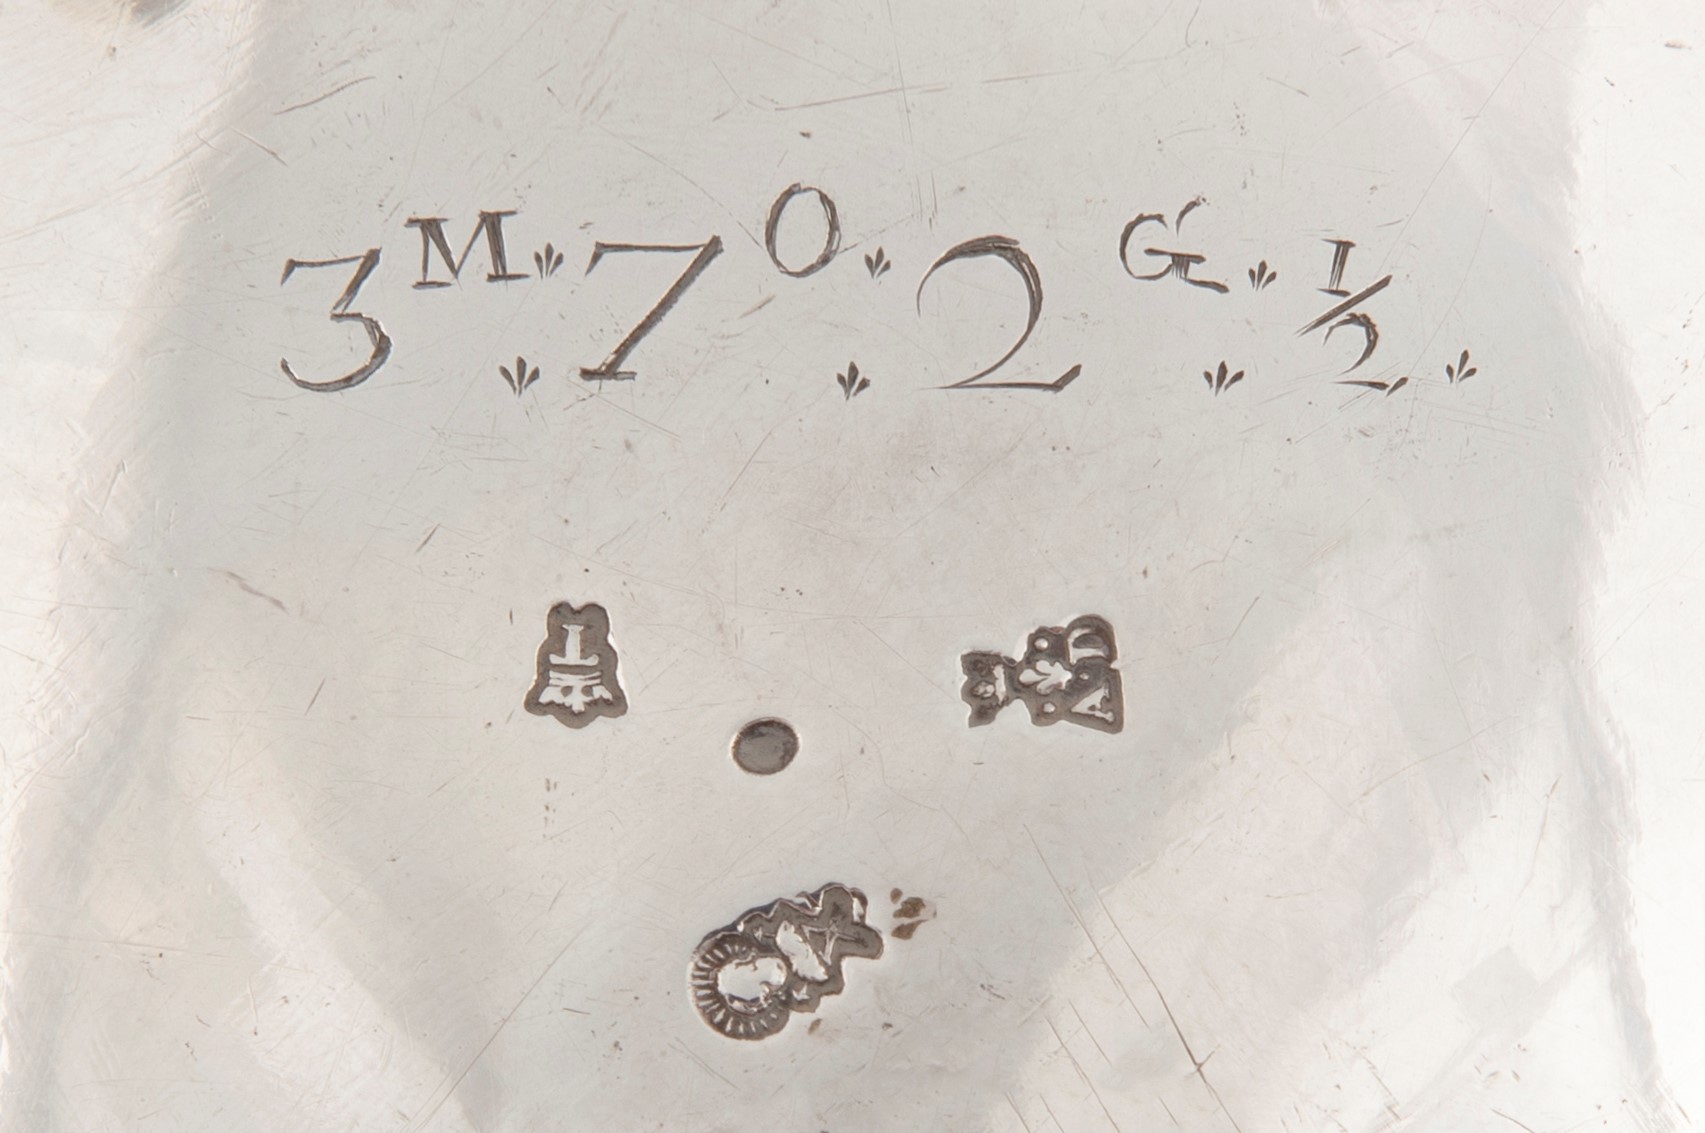 3 M . 7 O . 2 G . 1/2 .
I
D
A